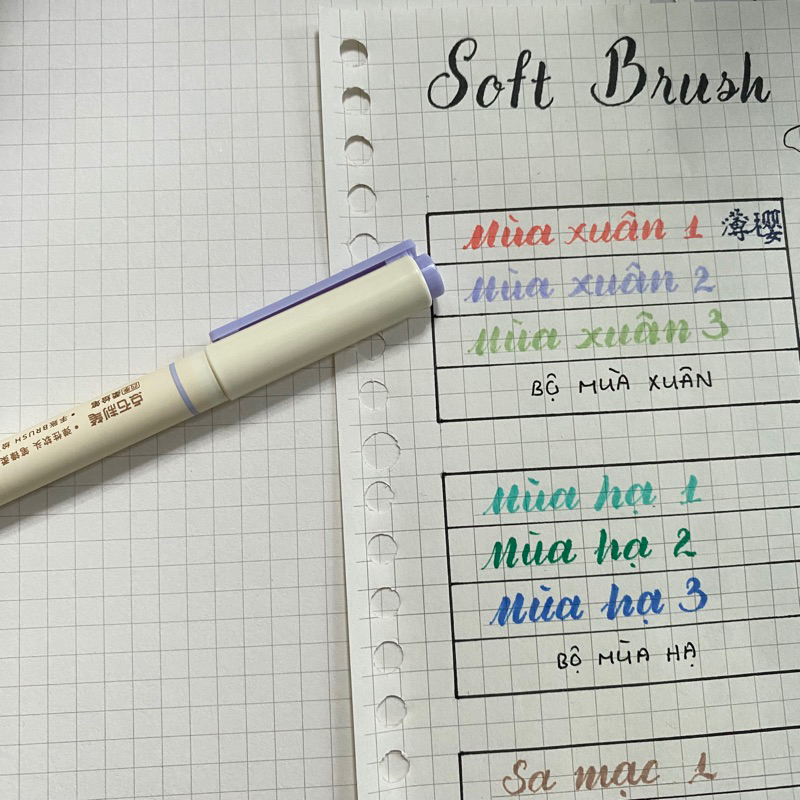 Soft Brush
Mùa xuân 1 薄樱
Mùa xuân 2
Mùa xuân 3
BỘ MÙA XUÂN
Mùa hạ 1
Mùa hạ 2
Mùa hạ 3
BỘ MÙA HẠ
Sa mạc 1
点石制笔
• 手账BRUSH
• 弹性软头